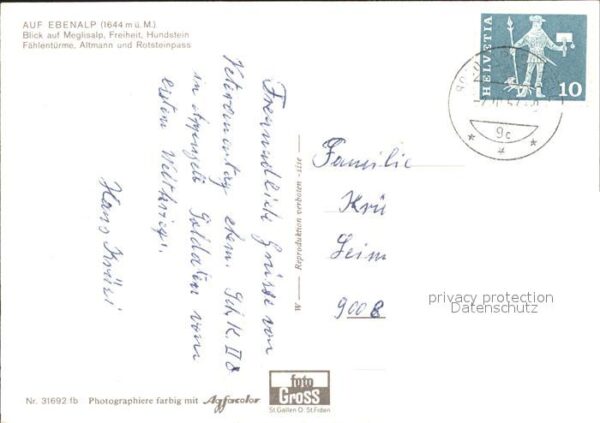 AUF EBENALP (1644 m ü. M.)
Blick auf Meglisalp, Freiheit, Hundstein
Fählentürme, Altmann und Rotsteinpass
HELVETIA
10
9c
Freundliche Grüsse von
Veteranentag ehem. Geb. K. II 8
in Appenzell Soldaten vom
ersten Weltkrieg.
Hans Kräzi
M — Reproduktion verboten
Familie
Krü
Leim
9008
privacy protection
Datenschutz
Nr. 31692 fb Photographiere farbig mit Agfacolor
foto
Gross
St.Gallen O. St.Fiden